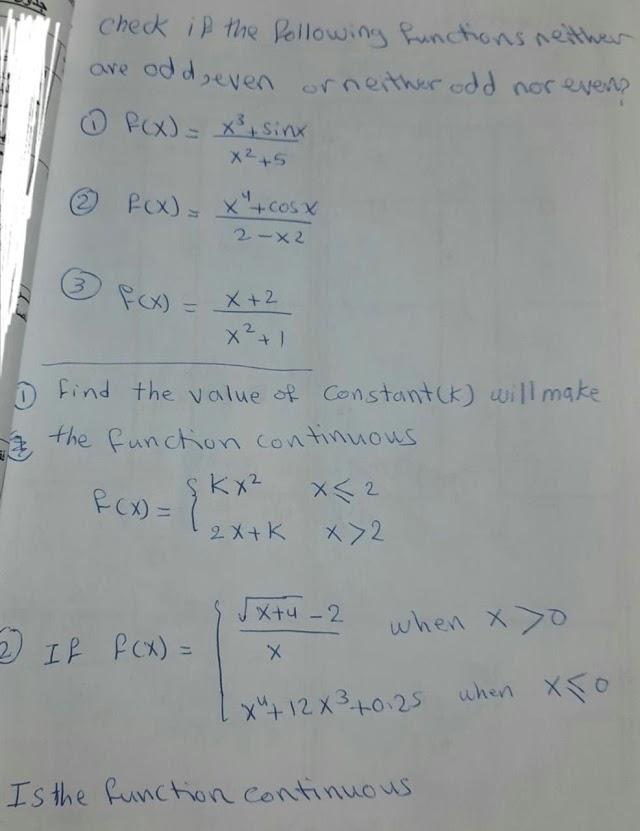 check if the following functions neither
are odd, even or neither odd nor even?
① f(x) = (x³ + sinx) / (x² + 5)
② f(x) = (x⁴ + cosx) / (2 - x2)
③ f(x) = (x + 2) / (x² + 1)
① find the value of constant (k) will make
the function continuous
f(x) = { kx² x ≤ 2
2x + k x > 2
② If f(x) = { (√(x+4) - 2) / x when x > 0
x⁴ + 12x³ + 0.25 when x ≤ 0
Is the function continuous